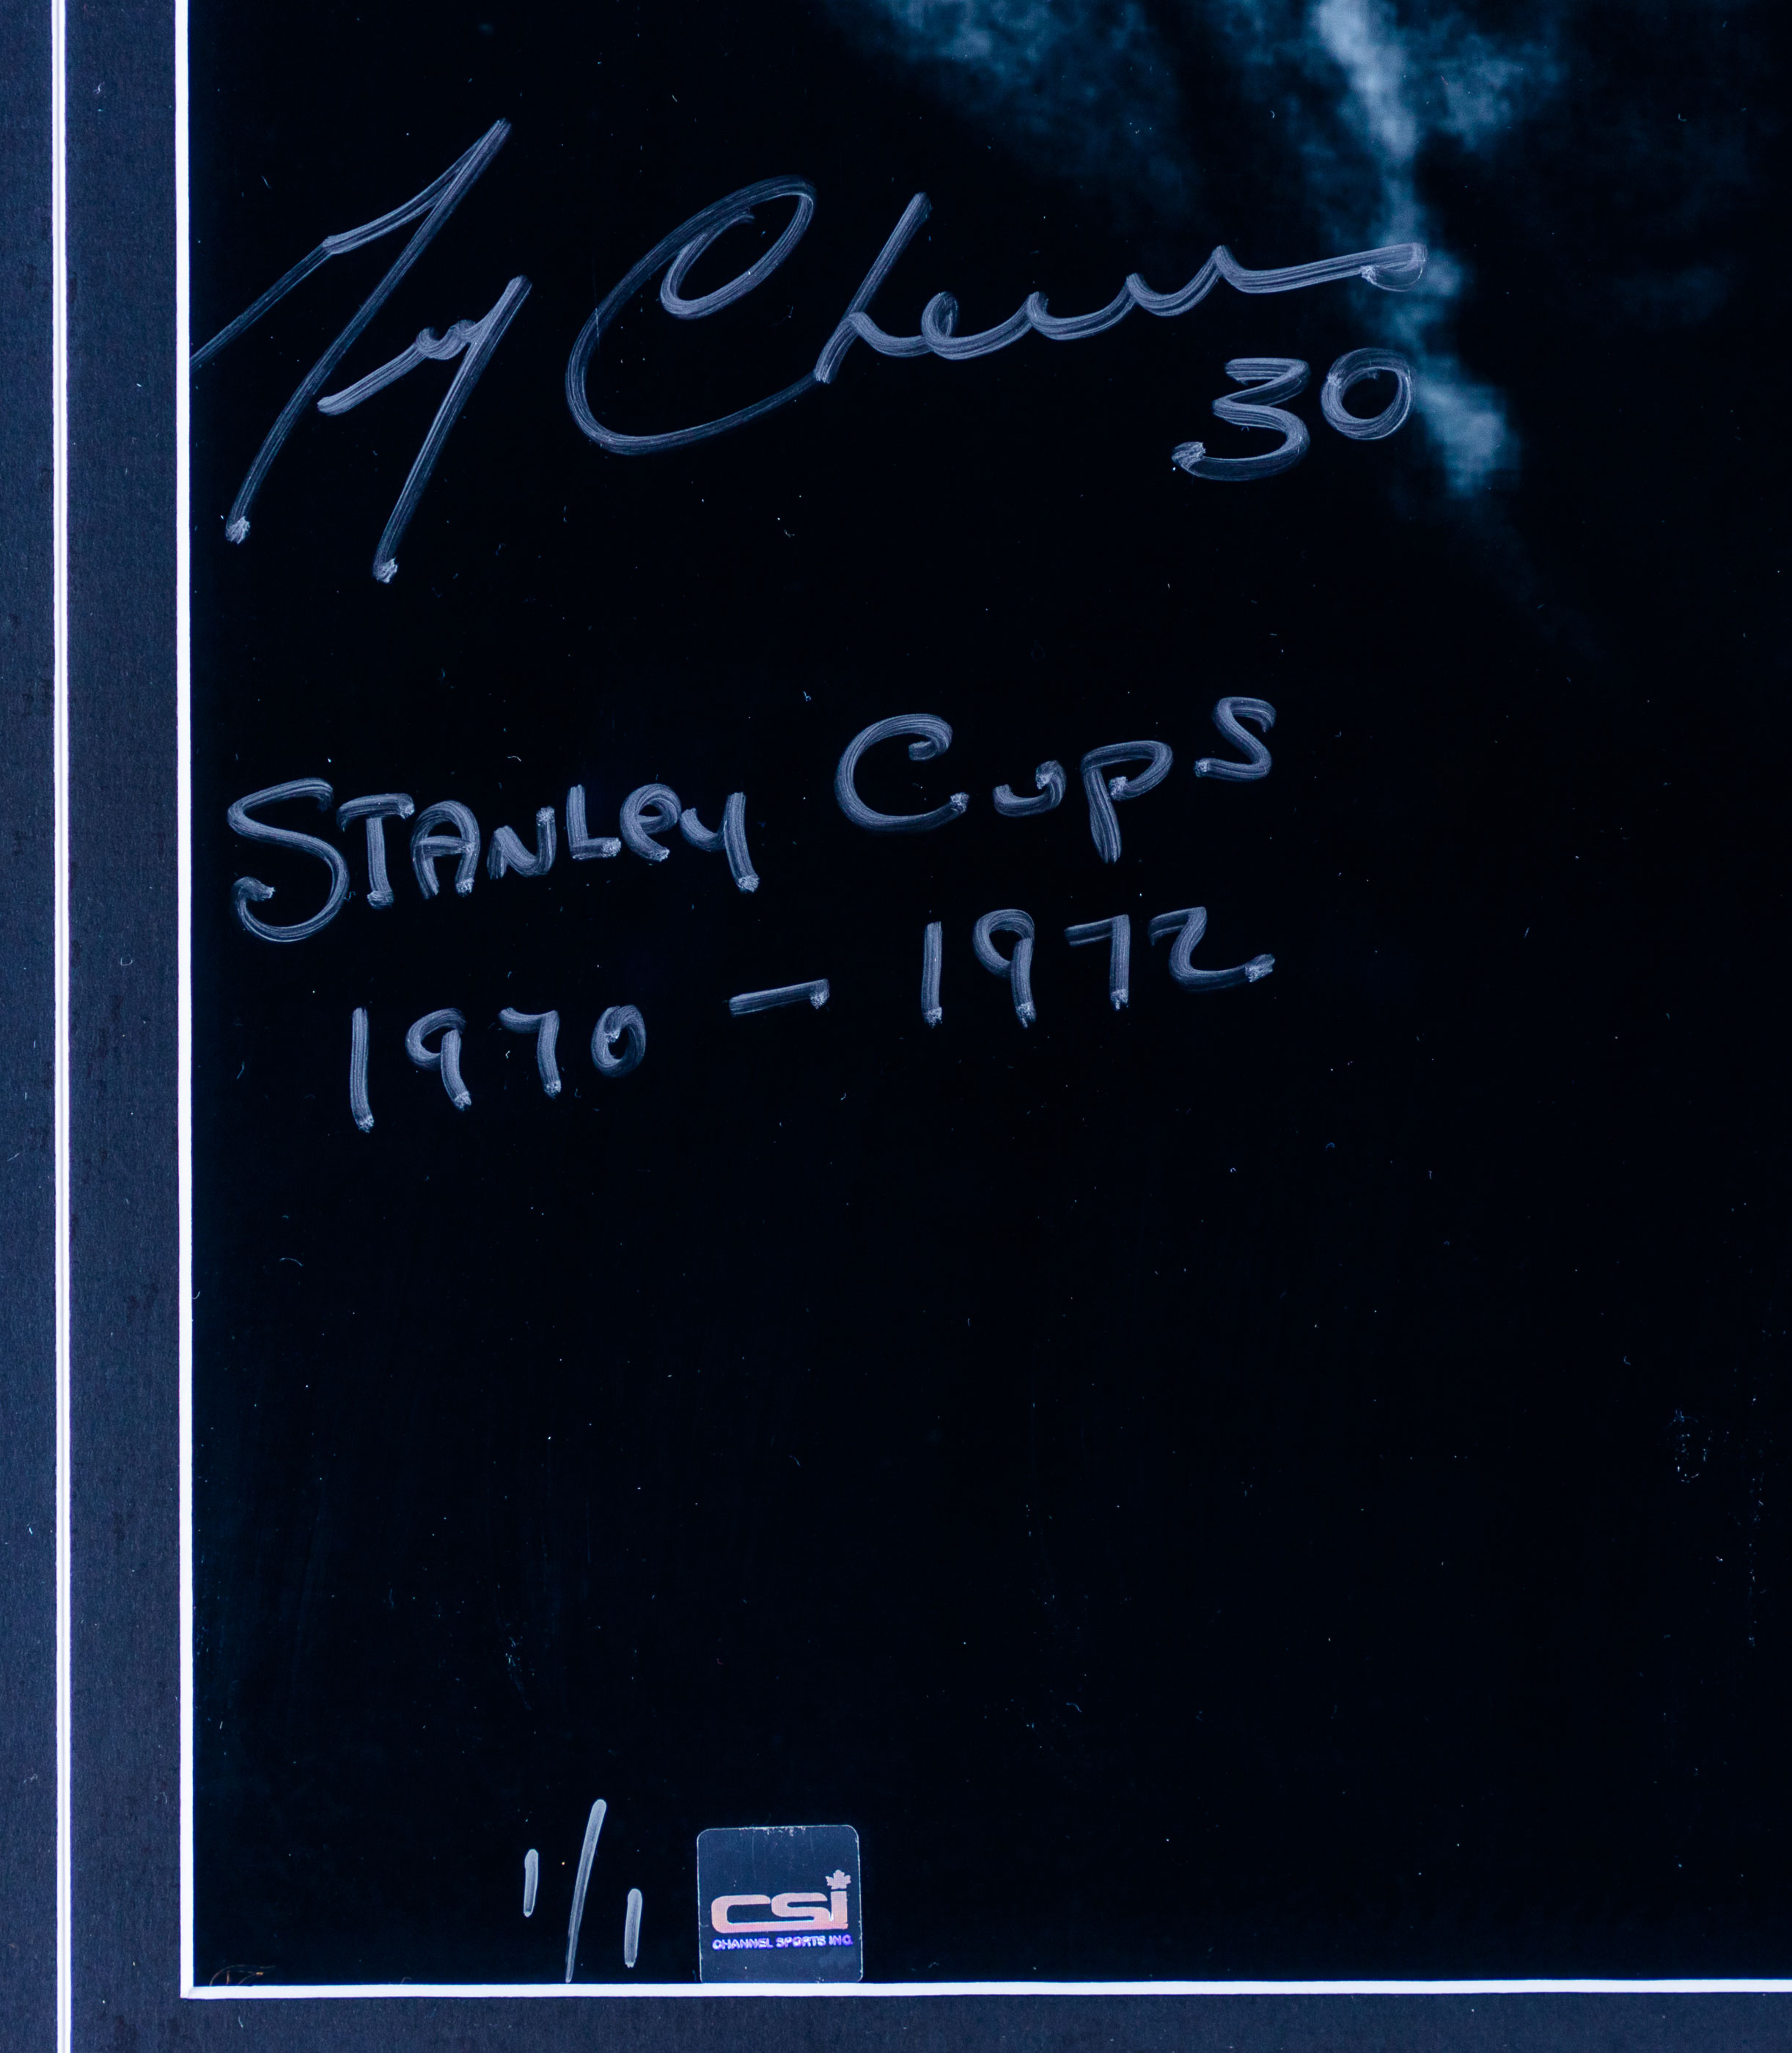 Gerry Cheevers
30
STANLEY CUPS
1970 - 1972
1/1
CSI
CHANNEL SPORTS INC.